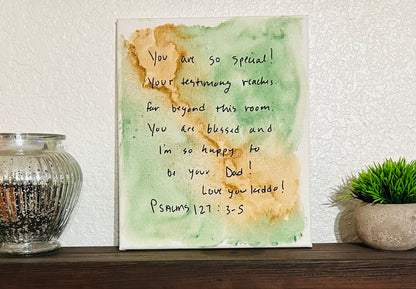 You are so special!
Your testimony reaches
far beyond this room.
You are blessed and
I'm so happy to
be your Dad!
Love you kiddo!
PSALMS 127:3-5